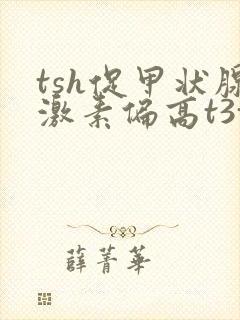 tsh促甲状腺
激素偏高t3
薛菁华